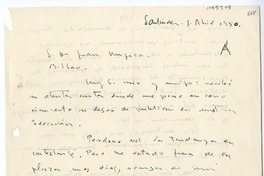 Santander, 1 Abril 1950.
A
S. D. Juan Mugica.
Bilbao.
Muy Sr. mio y amigo: recibi
su atenta carta donde me pone en cono-
cimiento su deseo de publicar en nuestra
colección.
Perdone Vd. la tardanza en
contestarle. Pero he estado fuera de
la plaza unos dias,